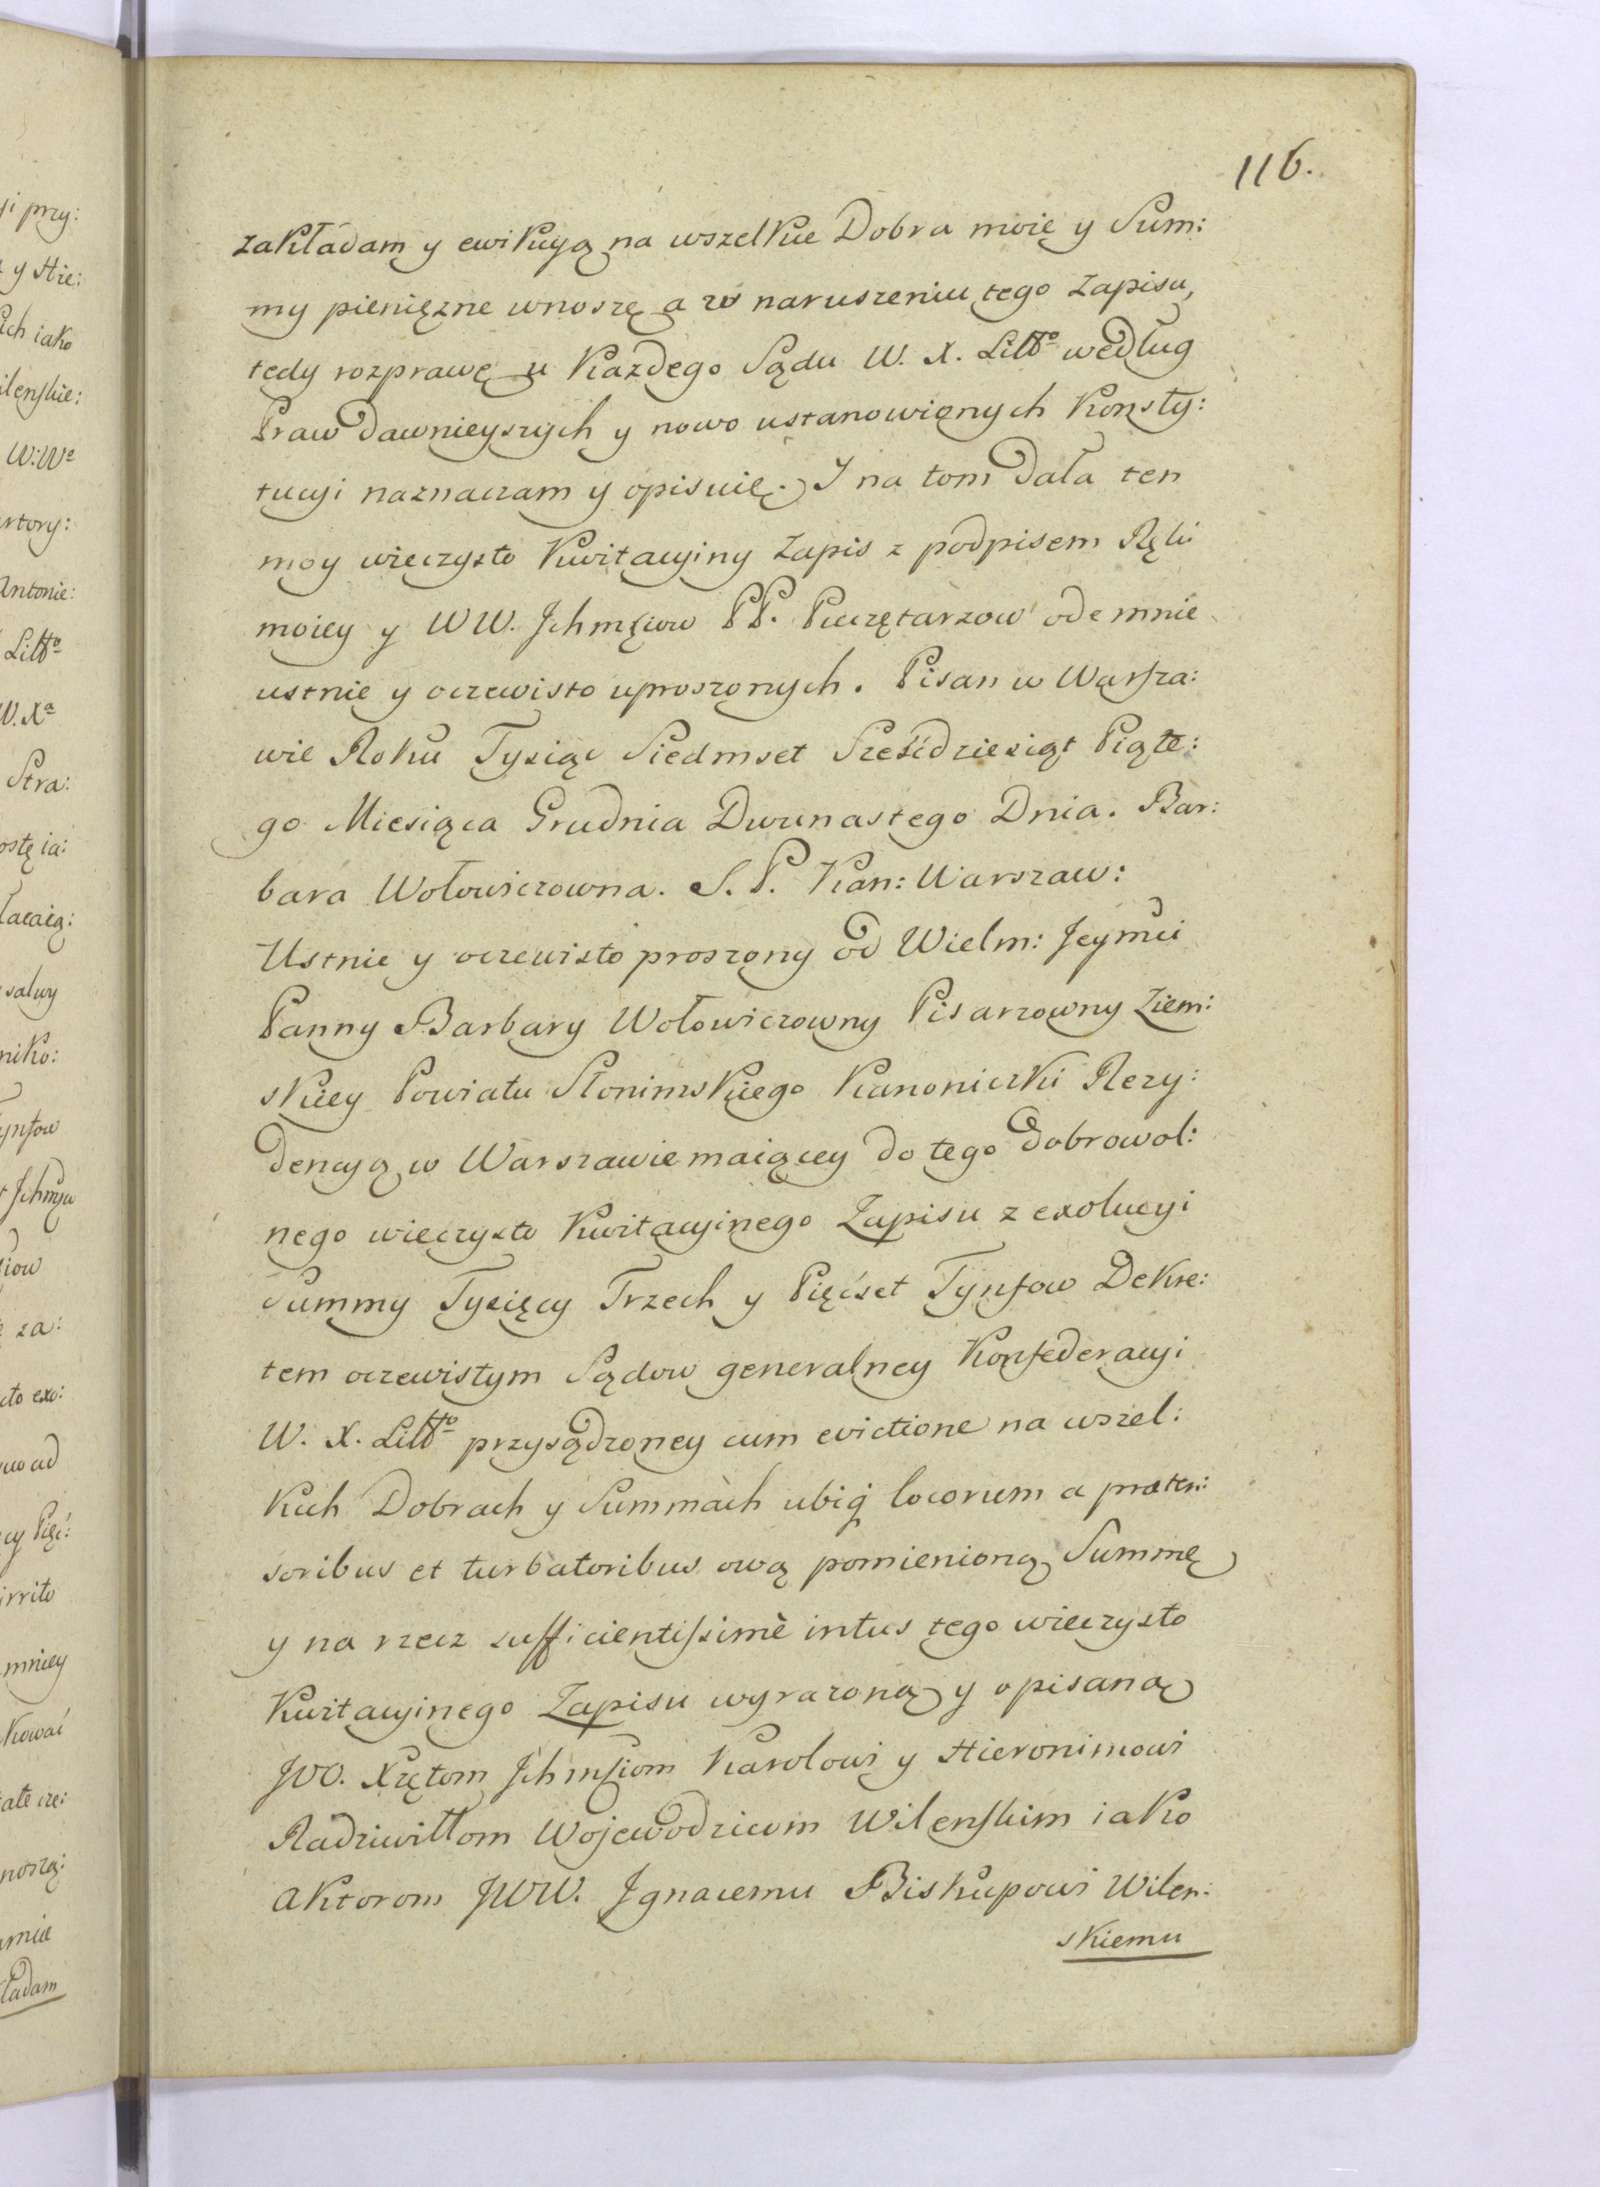 116.
zakładam y ewikcyą na wszelkie Dobra moie y Sum:
my pienięzne wnoszę a w naruszeniu tego zapisu,
tedy rozprawę u Kazdego Sądu W. X. Litto według
Praw dawnieyszych y nowo ustanowionych Konsty:
tucyi naznaczam y opisuię. I na tom dała ten
moy wieczysto Kwitacyiny Zapis z podpisem Ręki
moiey y WW. Jchmściow PP. Pieczętarzow odemnie
ustnie y oczewisto uproszonych. Pisan w Warsza:
wie Roku Tysiąc Siedmset Sześćdziesiąt Piąte:
go Miesiąca Grudnia Dwunastego Dnia. Bar:
bara Wołowiczowna. S. P. Kan: Warszaw:
Ustnie y oczewisto proszony od Wielm: Jeymci
Panny Barbary Wołowiczowny Pisarzowny Ziem:
skiey Powiatu Słonimskiego Kanoniczki Rezy:
dencyą w Warszawie maiącey do tego dobrowol:
nego wieczysto Kwitacyinego Zapisu z exolucyi
Summy Tysięcy Trzech y Pięćset Tynfow Dekre:
tem oczewistym Sądow generalney Konfederacyi
W. X. Litto przysądzoney cum evictione na wszel:
kich Dobrach y Summach ubiq locorum a præten:
soribus et turbatoribus ową pomienioną Summę
y na rzecz sufficientissimè intus tego wieczysto
Kwitacyinego Zapisu wyrazoną y opisaną
JOO. Xżętom Jchmściom Karolowi y Hieronimowi
Radziwiłłom Wojewodzicom Wilenskim iako
aktorom JWW. Jgnacemu Biskupowi Wilen:
skiemu
ji przy:
y Hie:
ich iako
ilenskie:
W: Wa
rtory:
Antonie:
Litto
W. Xa
Stra:
ostę ia:
łacaią:
salwy
niko:
ynfow
Jchmću
iow
za:
cto exo:
uo ad
cy Pięć:
irrito
mniey
kować
ate cze:
noszą:
amie
kładam